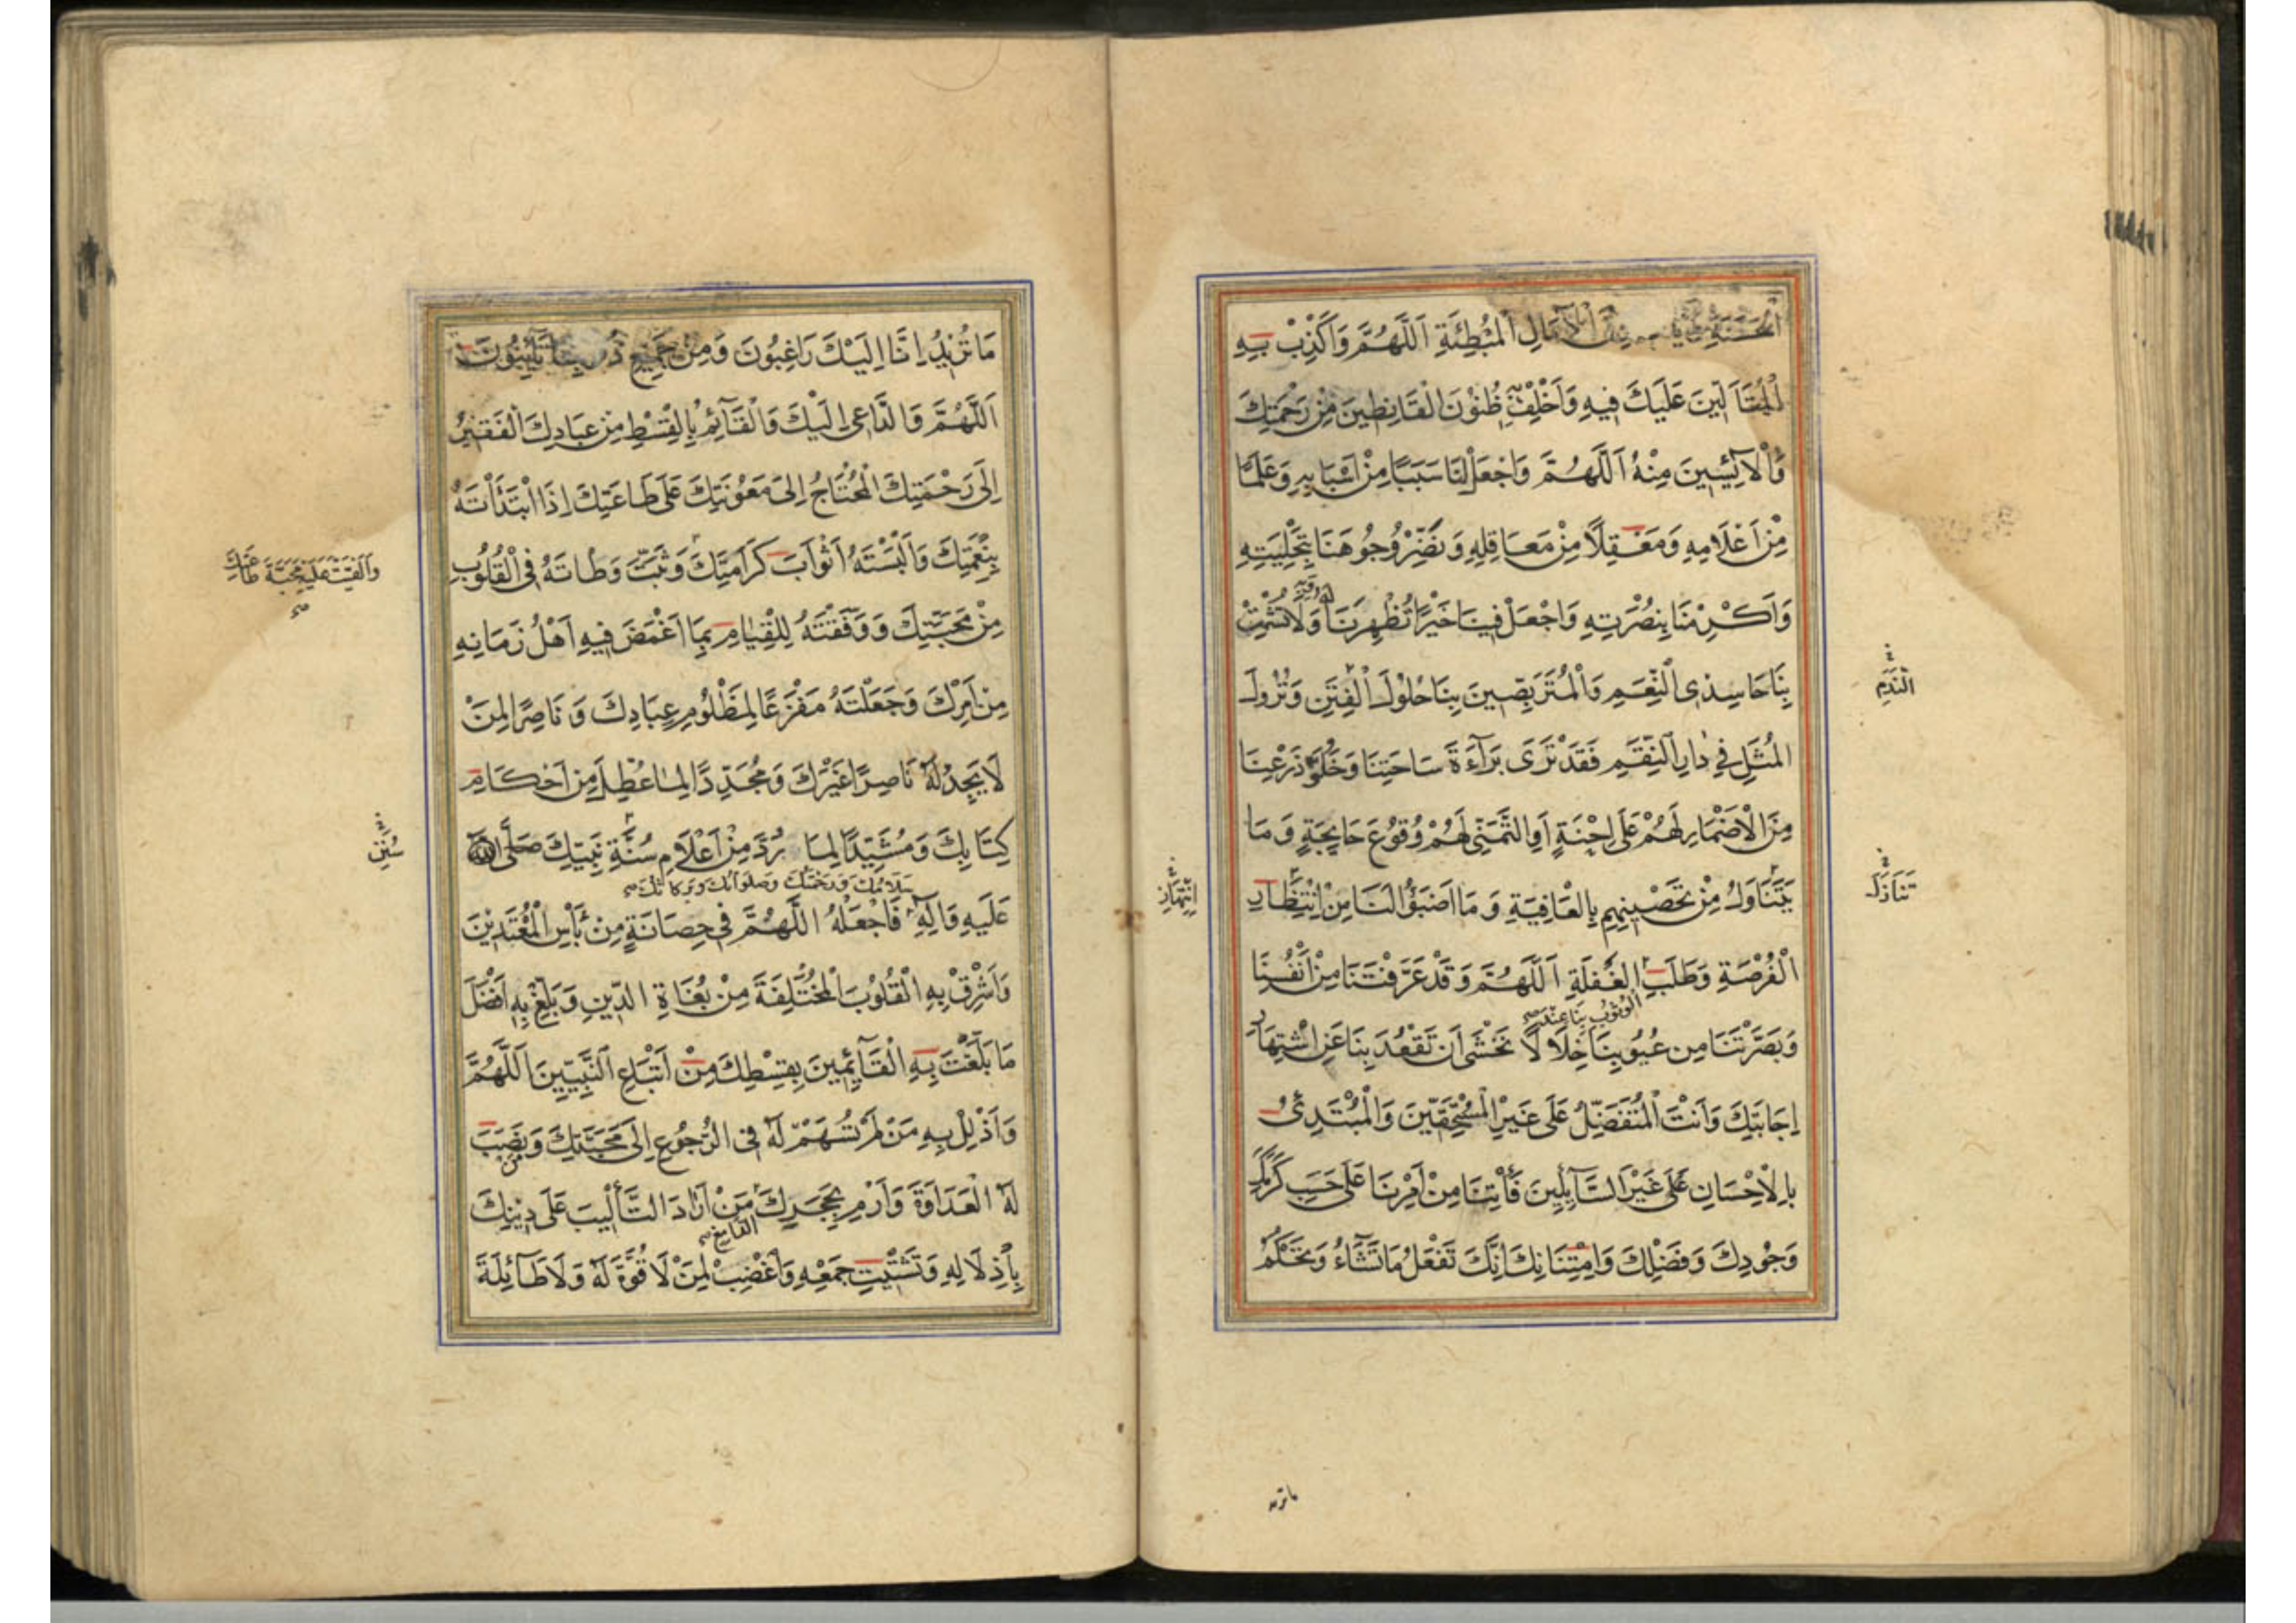 الْحَسَنَةِ الْآمَالِ الْمُبْطِئَةِ اَللّٰهُمَّ وَاَكْذِبْ بِهِ
الْمُتَاَلّينَ عَلَيْكَ فيهِ وَاَخْلِفْ ظُنُونَ الْقَانِطينَ مِنْ رَحْمَتِكَ
وَالْآيِسينَ مِنْهُ اَللّٰهُمَّ وَاجْعَلْنَا سَبَبًا مِنْ اَسْبَابِهِ وَعَلَمًا
مِنْ اَعْلَامِهِ وَمَعْقِلًا مِنْ مَعَاقِلِهِ وَنَضِّرْ وُجُوهَنَا بِتَحْلِيَتِهِ
وَاَكْرِمْنَا بِنُصْرَتِهِ وَاجْعَلْ فينَا خَيْرًا تُظْهِرُنَا لَهُ وَلَا تُشْمِتْ
بِنَا حَاسِدِى النِّعَمِ وَالْمُتَرَبِّصينَ بِنَا حُلُولَ الْفِتَنِ وَنُزُولَ
النَّدَمِ
الْمُثَلِ فِي دَارِ النِّقَمِ فَقَدْ تَرَى بَرَآءَةَ سَاحَتِنَا وَخُلُوَّ ذَرْعِنَا
مِنَ الْاِضْمَارِ لَهُمْ عَلَى اِحْنَةٍ اَوِ التَّمَنِّي لَهُمْ وُقُوعَ جَايِحَةٍ وَمَا
يَتَنَاوَلُ مِنْ تَحْصينِهِمْ بِالْعَافِيَةِ وَمَا اَضْبَؤُا لَنَا مِنْ اِنْتِظَارِ
اِنْتِهَازِ
الْفُرْصَةِ وَطَلَبِ الْغَفْلَةِ اَللّٰهُمَّ وَقَدْ عَرَّفْتَنَا مِنْ اَنْفُسِنَا
الْوُثُوبِ بِنَا عِنْدَ
وَبَصَّرْتَنَا مِنْ عُيُوبِنَا خِلَالًا نَخْشَى اَنْ تَقْعُدَ بِنَا عَنِ اشْتِهَارِ
اِجَابَتِكَ وَاَنْتَ الْمُتَفَضِّلُ عَلَى غَيْرِ الْمُسْتَحِقّينَ وَالْمُبْتَدِئُ
بِالْاِحْسَانِ عَلَى غَيْرِ السَّآئِلينَ فَأْتِنَا مِنْ اَمْرِنَا عَلَى حَسَبِ كَرَمِكَ
وَجُودِكَ وَفَضْلِكَ وَامْتِنَانِكَ اِنَّكَ تَفْعَلُ مَا تَشَآءُ وَتَحْكُمُ
مَا تُريدُ اِنَّا اِلَيْكَ رَاغِبُونَ وَمِنْ جَميعِ ذُنُوبِنَا تَائِبُونَ
اَللّٰهُمَّ وَالدَّاعى اِلَيْكَ وَالْقَآئِمُ بِالْقِسْطِ مِنْ عِبَادِكَ الْفَقيرُ
اِلَى رَحْمَتِكَ الْمُحْتَاجُ اِلَى مَعُونَتِكَ عَلَى طَاعَتِكَ اِذَا ابْتَدَأْتَهُ
بِنِعْمَتِكَ وَاَلْبَسْتَهُ اَثْوَابَ كَرَامَتِكَ وَثَبَّتَّ وَطْاَتَهُ فِى الْقُلُوبِ
وَاَلْقَيْتَ عَلَيْهِ مَحَبَّةَ طَاعَتِكَ
مِنْ مَحَبَّتِكَ وَوَفَّقْتَهُ لِلْقِيَامِ بِمَا اَغْمَضَ فيهِ اَهْلُ زَمَانِهِ
مِنْ اَمْرِكَ وَجَعَلْتَهُ مَفْزَعًا لِمَظْلُومِ عِبَادِكَ وَنَاصِرًا لِمَنْ
لَا يَجِدُ لَهُ نَاصِرًا غَيْرَكَ وَمُجَدِّدًا لِمَا عُطِّلَ مِنْ اَحْكَامِ
كِتَابِكَ وَمُشَيِّدًا لِمَا رُدَّ مِنْ اَعْلَامِ سُنَّةِ نَبِيِّكَ صَلَّى اللّٰهُ
سُنَنِ
سَلَامُكَ وَرَحْمَتُكَ وَصَلَوَاتُكَ وَبَرَكَاتُكَ
عَلَيْهِ وَاٰلِهِ فَاجْعَلْهُ اللّٰهُمَّ فِى حِصَانَةٍ مِنْ بَأْسِ الْمُعْتَدينَ
وَاَشْرِقْ بِهِ الْقُلُوبَ الْمُخْتَلِفَةَ مِنْ بُغَاةِ الدِّينِ وَبَلِّغْ بِهِ اَفْضَلَ
مَا بَلَّغْتَ بِهِ الْقَآئِمينَ بِقِسْطِكَ مِنْ اَتْبَاعِ النَّبِيّينَ اَللّٰهُمَّ
وَاَذْلِلْ بِهِ مَنْ لَمْ تُسْهِمْ لَهُ فِى الرُّجُوعِ اِلَى مَحَبَّتِكَ وَنَصَبَ
لَهُ الْعَدَاوَةَ وَارْمِ بِحَجَرِكَ مَنْ اَرَادَ التَّأْليبَ عَلَى دينِكَ
بِاِذْلَالِهِ وَتَشْتيتِ جَمْعِهِ وَاغْضِبْ لِمَنْ لَا قُوَّةَ لَهُ وَلَا طَآئِلَةَ